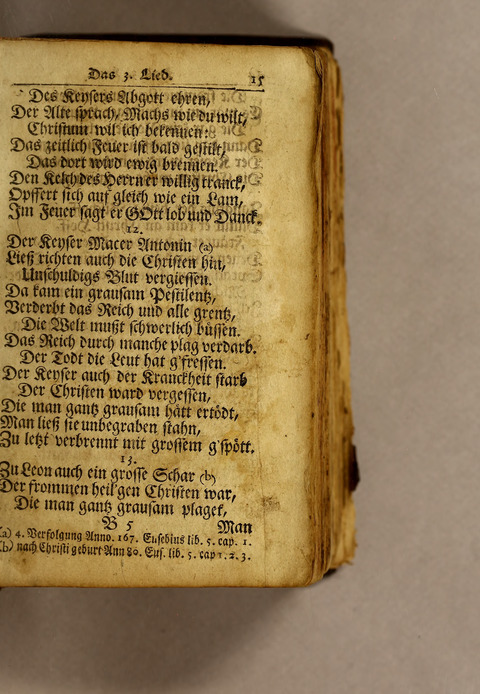 Das 3. Lied. 15
Des Keysers Abgott ehren,
Der Alte sprach, Machs wie du wilt,
Christum wil ich bekennen:
Das zeitlich Feuer ist bald gestilt,
Das dort wird ewig brennen.
Den Kelch des Herrn er willig tranck,
Opffert sich auf gleich wie ein Lam,
Im Feuer sagt er GOtt lob und Danck.
12.
Der Keyser Macer Antonin (a)
Ließ richten auch die Christen hin,
Unschuldigs Blut vergiessen.
Da kam ein grausam Pestilentz,
Verderbt das Reich und alle grentz,
Die Welt mußt schwerlich büssen.
Das Reich durch manche plag verdarb.
Der Todt die Leut hat g'fressen.
Der Keyser auch der Kranckheit starb
Der Christen ward vergessen,
Die man gantz grausam hätt ertödt,
Man ließ sie unbegraben stahn,
Zu letzt verbrennt mit grossem g'spött.
13.
Zu Leon auch ein grosse Schar (b)
Der frommen heil'gen Christen war,
Die man gantz grausam plaget,
B 5 Man
(a) 4. Verfolgung Anno. 167. Eusebius lib. 5. cap. 1.
(b) nach Christi geburt Ann 80. Eus. lib. 5. cap 1. 2. 3.